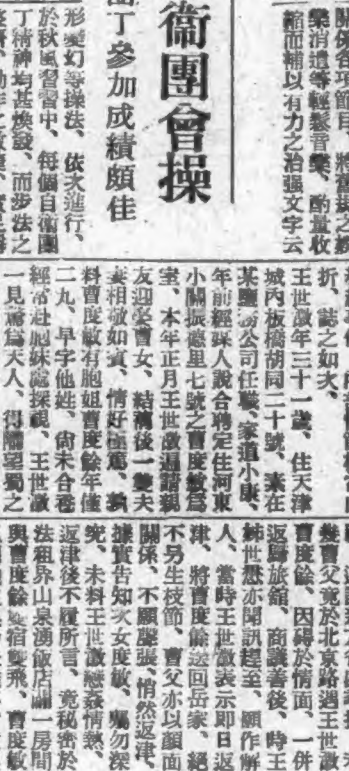 關係各項節目、將舊捷之緩
樂消遣等輕鬆音樂、酌量收
縮而輔以有力之治强文字云
衞團會操
丁參加成績頗佳
形變幻等操法、依次進行、
於秋風習習中、每個自衞團
丁精神均甚煥發、而步法之
折、誌之如次、
王世澂年三十一歲、住天津
城內板橋胡同二十號、素在
某鹽務公司任職、家道小康、
年前經媒人說合聘定住河東
小關振德里七號之曹度敏爲
室、本年正月王世澂遍請親
友迎娶曹女、結褵後一雙夫
妻相敬如賓、情好極篤、孰
料曹度敏有胞姐曹度餘年僅
二九、早字他姓、尙未合巹
經常赴胞妹處探視、王世澂
一見驚爲天人、得隴望蜀之
幾曹父竟於北京路遇王世澂
曹度餘、因碍於情面、一併
返歸旅舘、商議善後、時王
姊世懋亦聞訊趕至、願作解
人、當時王世澂表示卽日返
津、將曹度餘送回岳家、絕
不另生枝節、曹父亦以顏面
關係、不願聲張、悄然返津、
據實告知次女度敏、囑勿深
究、未料王世澂戀姦情熱、
返津後不履所言、竟秘密於
法租界山泉湧飯店闢一房間
與曹度餘雙宿雙飛、曹度敏